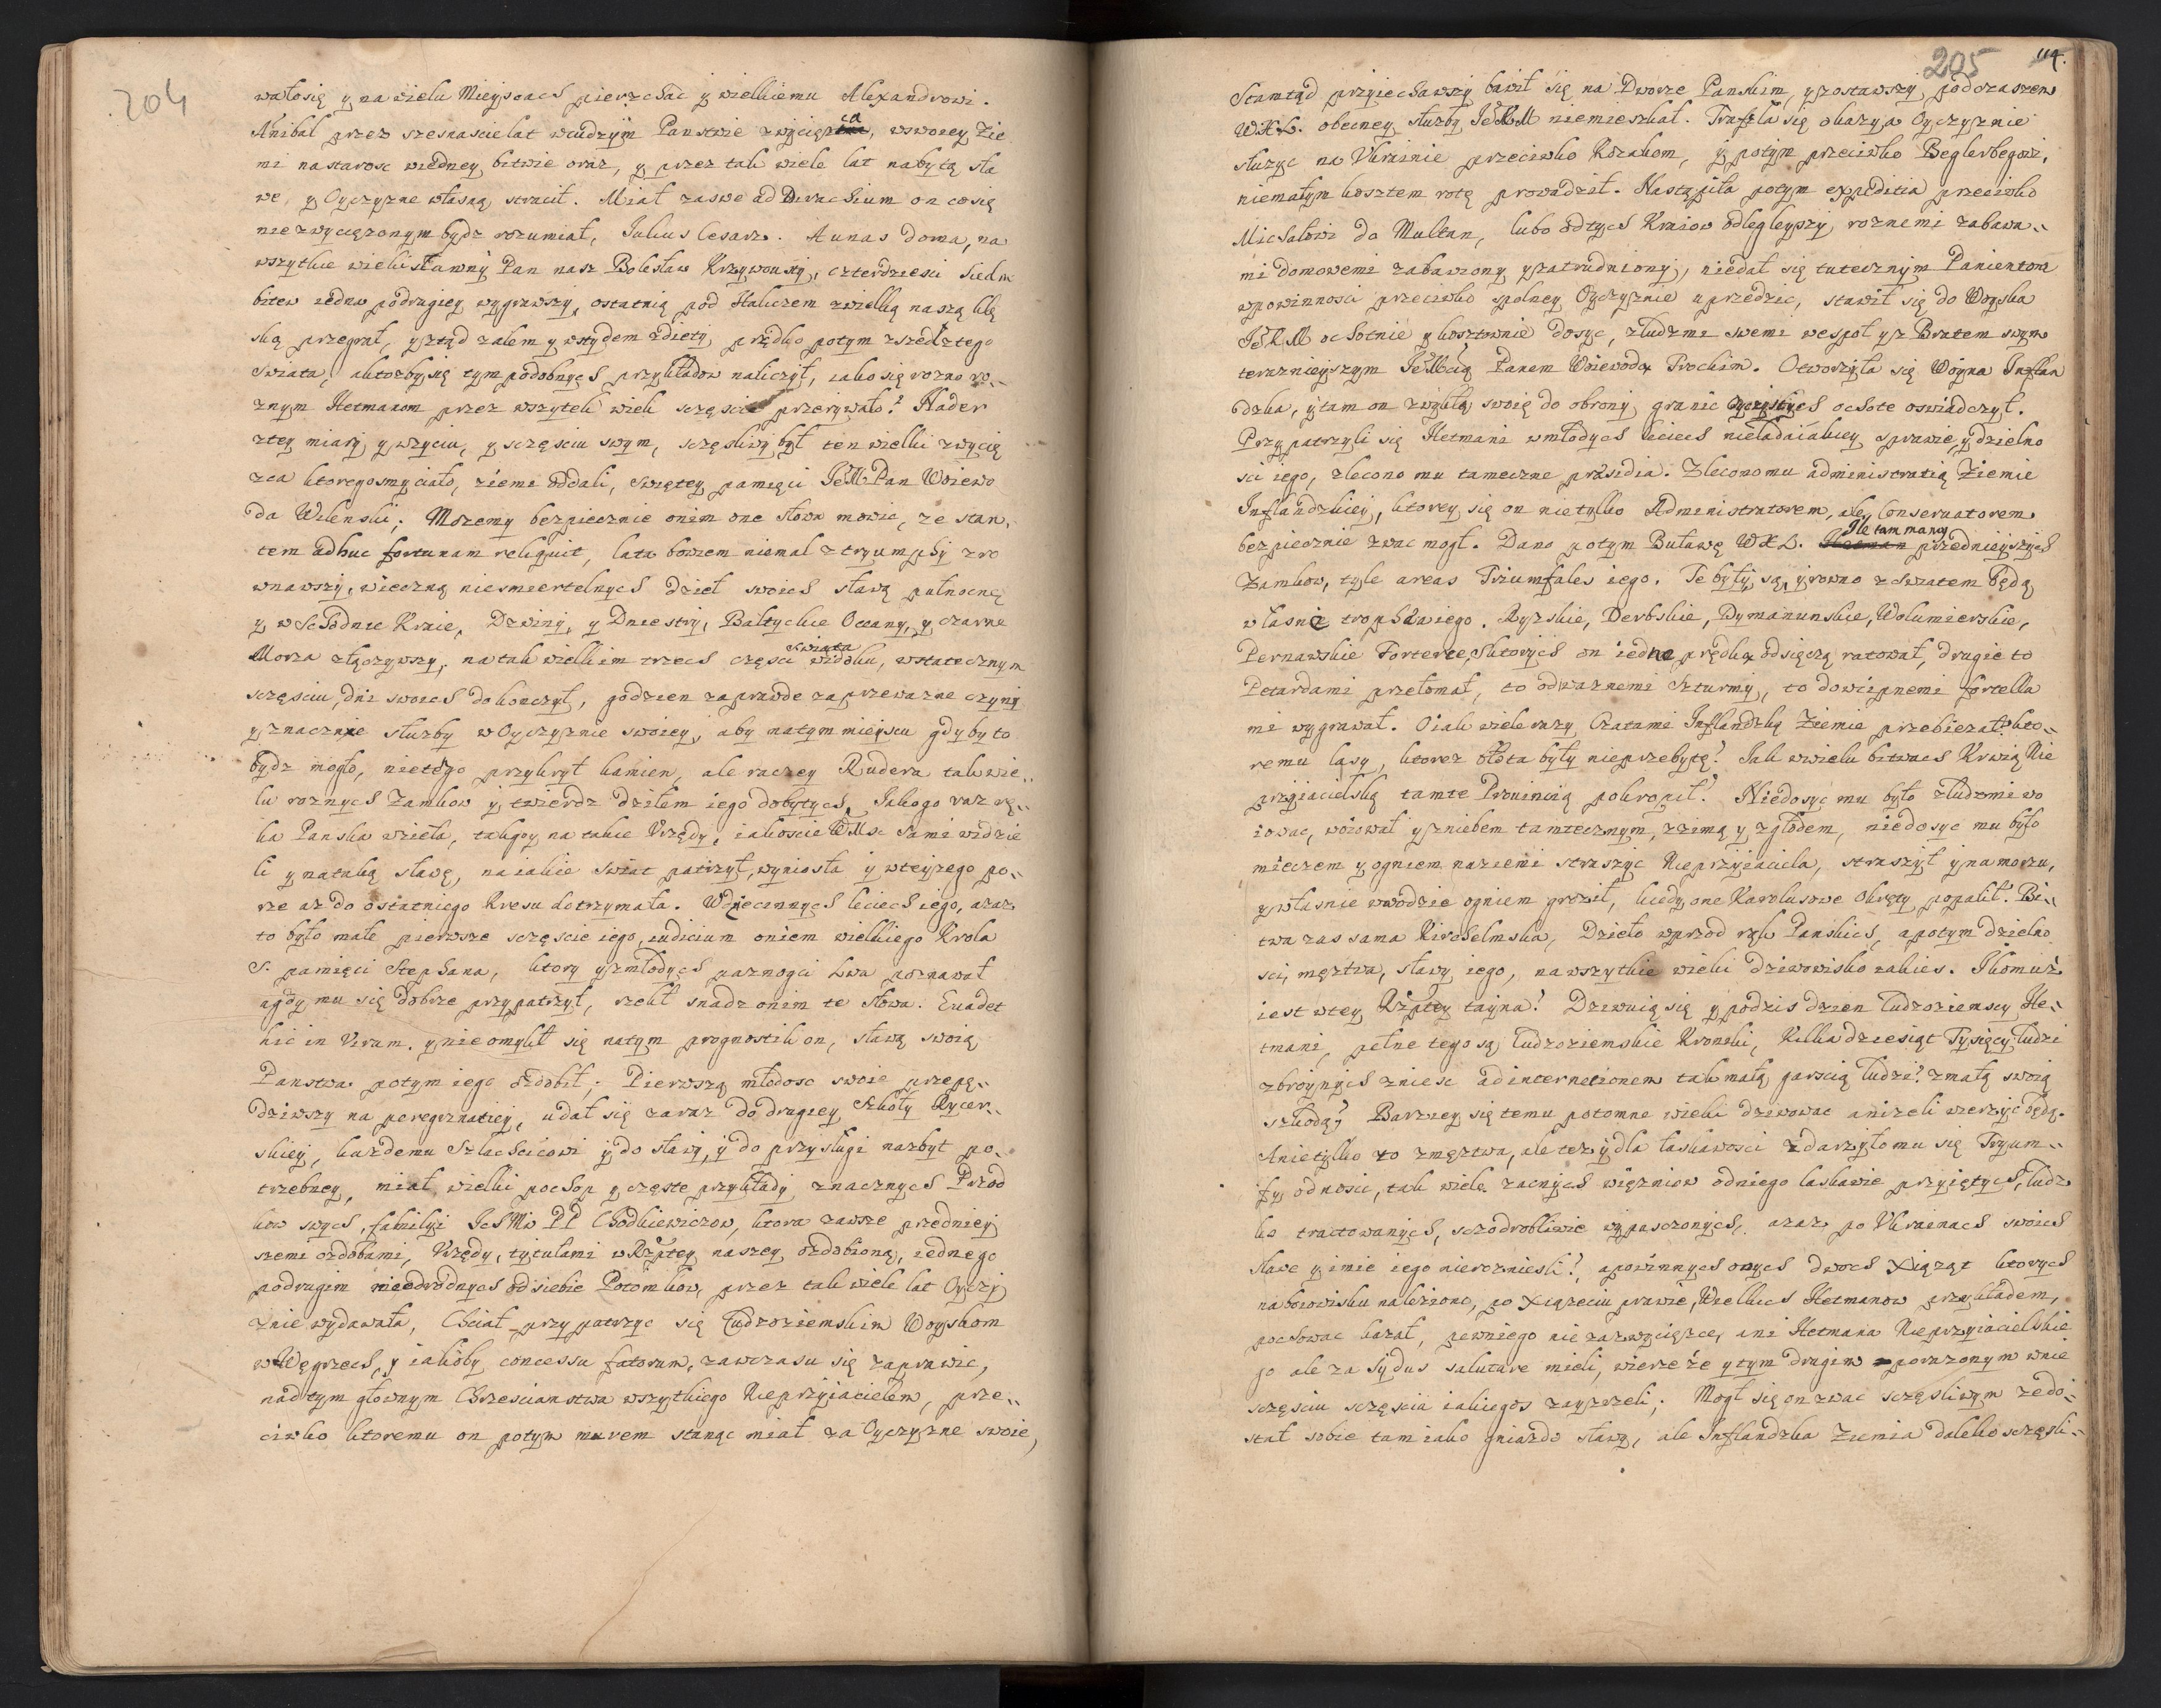 204
wało się y na wielu Mieyscach pierzchać y wielkiemu Alexandrowi.
Anibal przez szesnascie lat w cudzym Panstwie zwycięzca, w swoiey Zie
mi na starosc w iedney bitwie oraz, y przez tak wiele lat nabytą sła
we, y Oyczyzne własną stracił. Miał zaswe ad Dirachium on co się
niezwyciężonym bydz rozumiał, Julius Cesarz. A u nas doma, na
wszytkie wieki sławny Pan nasz Bolesław Krzywousty, czterdziesci siedm
bitew iedna po drugiey wygrawszy, ostatnią pod Haliczem z wielką naszą klę
ską przegrał, y stąd żalem y wstydem zdięty, prędko potym zszedł z tego
swiata, a ktozby się tym podobnych przykładow naliczył, iako się rozno ro„
znym Hetmanom przez wszytek wiek scz̨ęscie przerywało? Nader
z tey miary y w zyciu, y sczęsciu swym, sczęsliwy był ten wielki zwycię
zca ktoregosmy ciało, ziemi oddali, swiętey pamięci JeM Pan Woiewo
da Wilenski; Mozemy bezpiecznie o nim one słowa mowic, ze stan„
tem adhuc fortunam reliquit, lata bowiem niemal z tryumphy zro
wnawszy, wieczną niesmiertelnych dzieł swoich sławą pułnocne
y wschodnie Kraie, Dzwiny, y Dniestry, Baltyckie Oceany, y czarne
Morza złączywszy, na tak wielkim trzech częsci swiata widoku, w statecznym
sczęsciu, dni swoich dokonczył, godzien zaprawde za przewazne czyny
y znacznie słuzby w Oyczyznie swoiey, aby na tym mieyscu gdyby to
bydz mogło, nie tego przykrył kamien, ale raczey Rudera tak wie„
lu roznych Zamkow y twierdz dziłem iego dobytych. Jako go raz rę„
ka Panska wzieła, tak go y na takie Vrzędy, iakoscie WMsc sami widzie
li y na taką sławę, na iakie swiat patrzył, wyniosła y w teyze go po„
rze az do ostatniego Kresu dotrzymała. W dziecinnych leciech iego, azaz
to było małe pierwsze sczęscie iego, iudicium o niem wielkiego Krola
S. pamięci Stephana, ktory y z młodych paznogci Lwa poznawał
a gdy mu się dobrze przypatrzył, rzekł snadz o nim te słowa: Euadet
hic in Virum. y nie omylił się na tym prognostikon, sławą swoią
Panstwa potym iego ozdobił; Pierwszą młodosc swoie przepę„
dziwszy na peregrinatiey, udał się zaraz do drugiey Szkoły Rycer„
skiey, kazdemu Szlachcicowi y do sławy, y do przysługi nazbyt po„
trzebney, miał wielki pochop y częste przykłady znacznych Przod
kow swych, familyi IchMw PP Chodkiewiczow, ktora zawsze przedniey
szemi ozdobami, Vrzędy, tytułami w Rzptey naszey ozdobioną, iednego
po drugim nieodrodnych od siebie Potomkow, przez tak wiele lat Oyczy
znie wydawała, Chciał przypatrzyc się Cudzoziemskim Woyskom
w Węgrzech, y iakoby concessu fatorum, zawczasu się zaprawic,
nad tym głownym Chrzescianstwa wszytkiego Nieprzyiacielem, prze„
ciwko ktoremu on potym murem stanąc miał za Oyczyzne swoie,
205
114.
Stamtąd przyiechawszy bawił się na Dworze Panskim, y zostawszy podczaszem
WXL. obecney słuzby JeKM niemieszkał. Trafiła się okazya Oyczyznie
słuzyc na Vkrainie przeciwko Kozakom, y potym przeciwko Beglerbegowi,
niemałym kosztem rotę prowadził. Nastąpiła potym expeditia przeciwko
Michałowi do Multan, lubo od tych Kraiow odlegleyszy, roznemi zabawa„
mi domowemi zabawiony y zatrudniony, niedał się tutecznym Panientom
w powinnosci przeciwko spolney Oyczyznie uprzedzic, stawił się do Woyska
JeKM ochotnie y kosztownie dosyc, z ludzmi swemi wespoł y z Bratem swym
terazniejszym JeMcią Panem Woiewodą Trockim. Otworzyła się Woyna Inflan
dzka, y tam on zwykłą swoię do obrony granic oyczystych ochote oswiadczył.
Przypatrzyli się Hetmani w młodych leciech nieladaiakiey sprawie, y dzielno
sci iego, zlecono mu tameczne prasidia. Zlecono mu administratią Ziemie
Inflandzkiey, ktorey się on nietylko Administratorem, ale Conseruatorem
bezpiecznie zwac mogł. Dano potym Buławę WXL. Ile tam mamy przednieyszych
Zamkow, tyle areas Triumfales iego. Te były, są, y rowno z swiatem będą
własne trophæa iego. Ryzskie, Derbskie, Dymanunskie, Wolumierskie,
Pernawskie Fortece, z ktorych on iedne prędką odsięczą ratował, drugie to
Petardami przełomał, to odwaznemi szturmy, to dowcipnemi fortella
mi wygrawał. O iak wiele razy Czatami Inflandzką Ziemie przebiezał, kto„
remu lasy, ktorez błota były nieprzebyte? Jak w wielu bitwach Krwią Nie
przyiacielską tamte Prouincią pokropił? Niedosyc mu było z ludzmi wo
iowac, woiował y z niebem tamtecznym, z zimą y z głodem, niedosyc mu było
mieczem y ogniem na ziemi straszyc Nieprzyiaciela, straszył y na morzu,
y własnie w wodzie ogniem groził, kiedy one Karolusowe Okręty popalił. Bi„
twa zas sama Kircholmska, Dzieło wprzod rąk Panskich, a potym dzielno
sci, męztwa, sławy iego, na wszytkie wieki dziwowisko iakies. I komuż
iest w tey Rzptey tayna? Dziwuią się y po dzis dzien Cudzoziemscy He„
tmani, pełne tego są Cudzoziemskie Kroniki, Kilkadziesiąt Tysięcy ludzi
zbroynych zniesc ad internetionem tak małą garscią ludzi? z małą swoią
szkodą? Barziey się temu potomne wieki dziwowac anizeli wierzyc będą.
A nietylko to z męztwa, ale tez y dla łaskawosci zdarzyło mu się Tryum„
fy odnosic, tak wiele zacnych więzniow od niego łaskawie przyiętych, ludz
ko tractowanych, sczodrobliwie wypusczonych, azaz po Vkrainach swoich
sławe y imie iego nierozniesli? a powinnych onych dwoch Xiążąt ktorych
na boiowisku nalieziono, po Xiązęciu prawie, Wielkich Hetmanow przykładem,
pochowac kazał, pewniego nie za zwycięzce, ani Hetmana Nieprzyiacielskie
go ale za Sydus salutare mieli, wierze ze y tym drugim porazonym w nie
sczęsciu sczęscia iakiegos zayzrzeli; Mogł się on zwac sczęsliwym ze do„
stał sobie tam iako gniazdo sławy, ale Inflandzka Ziemia daleko sczęsli„